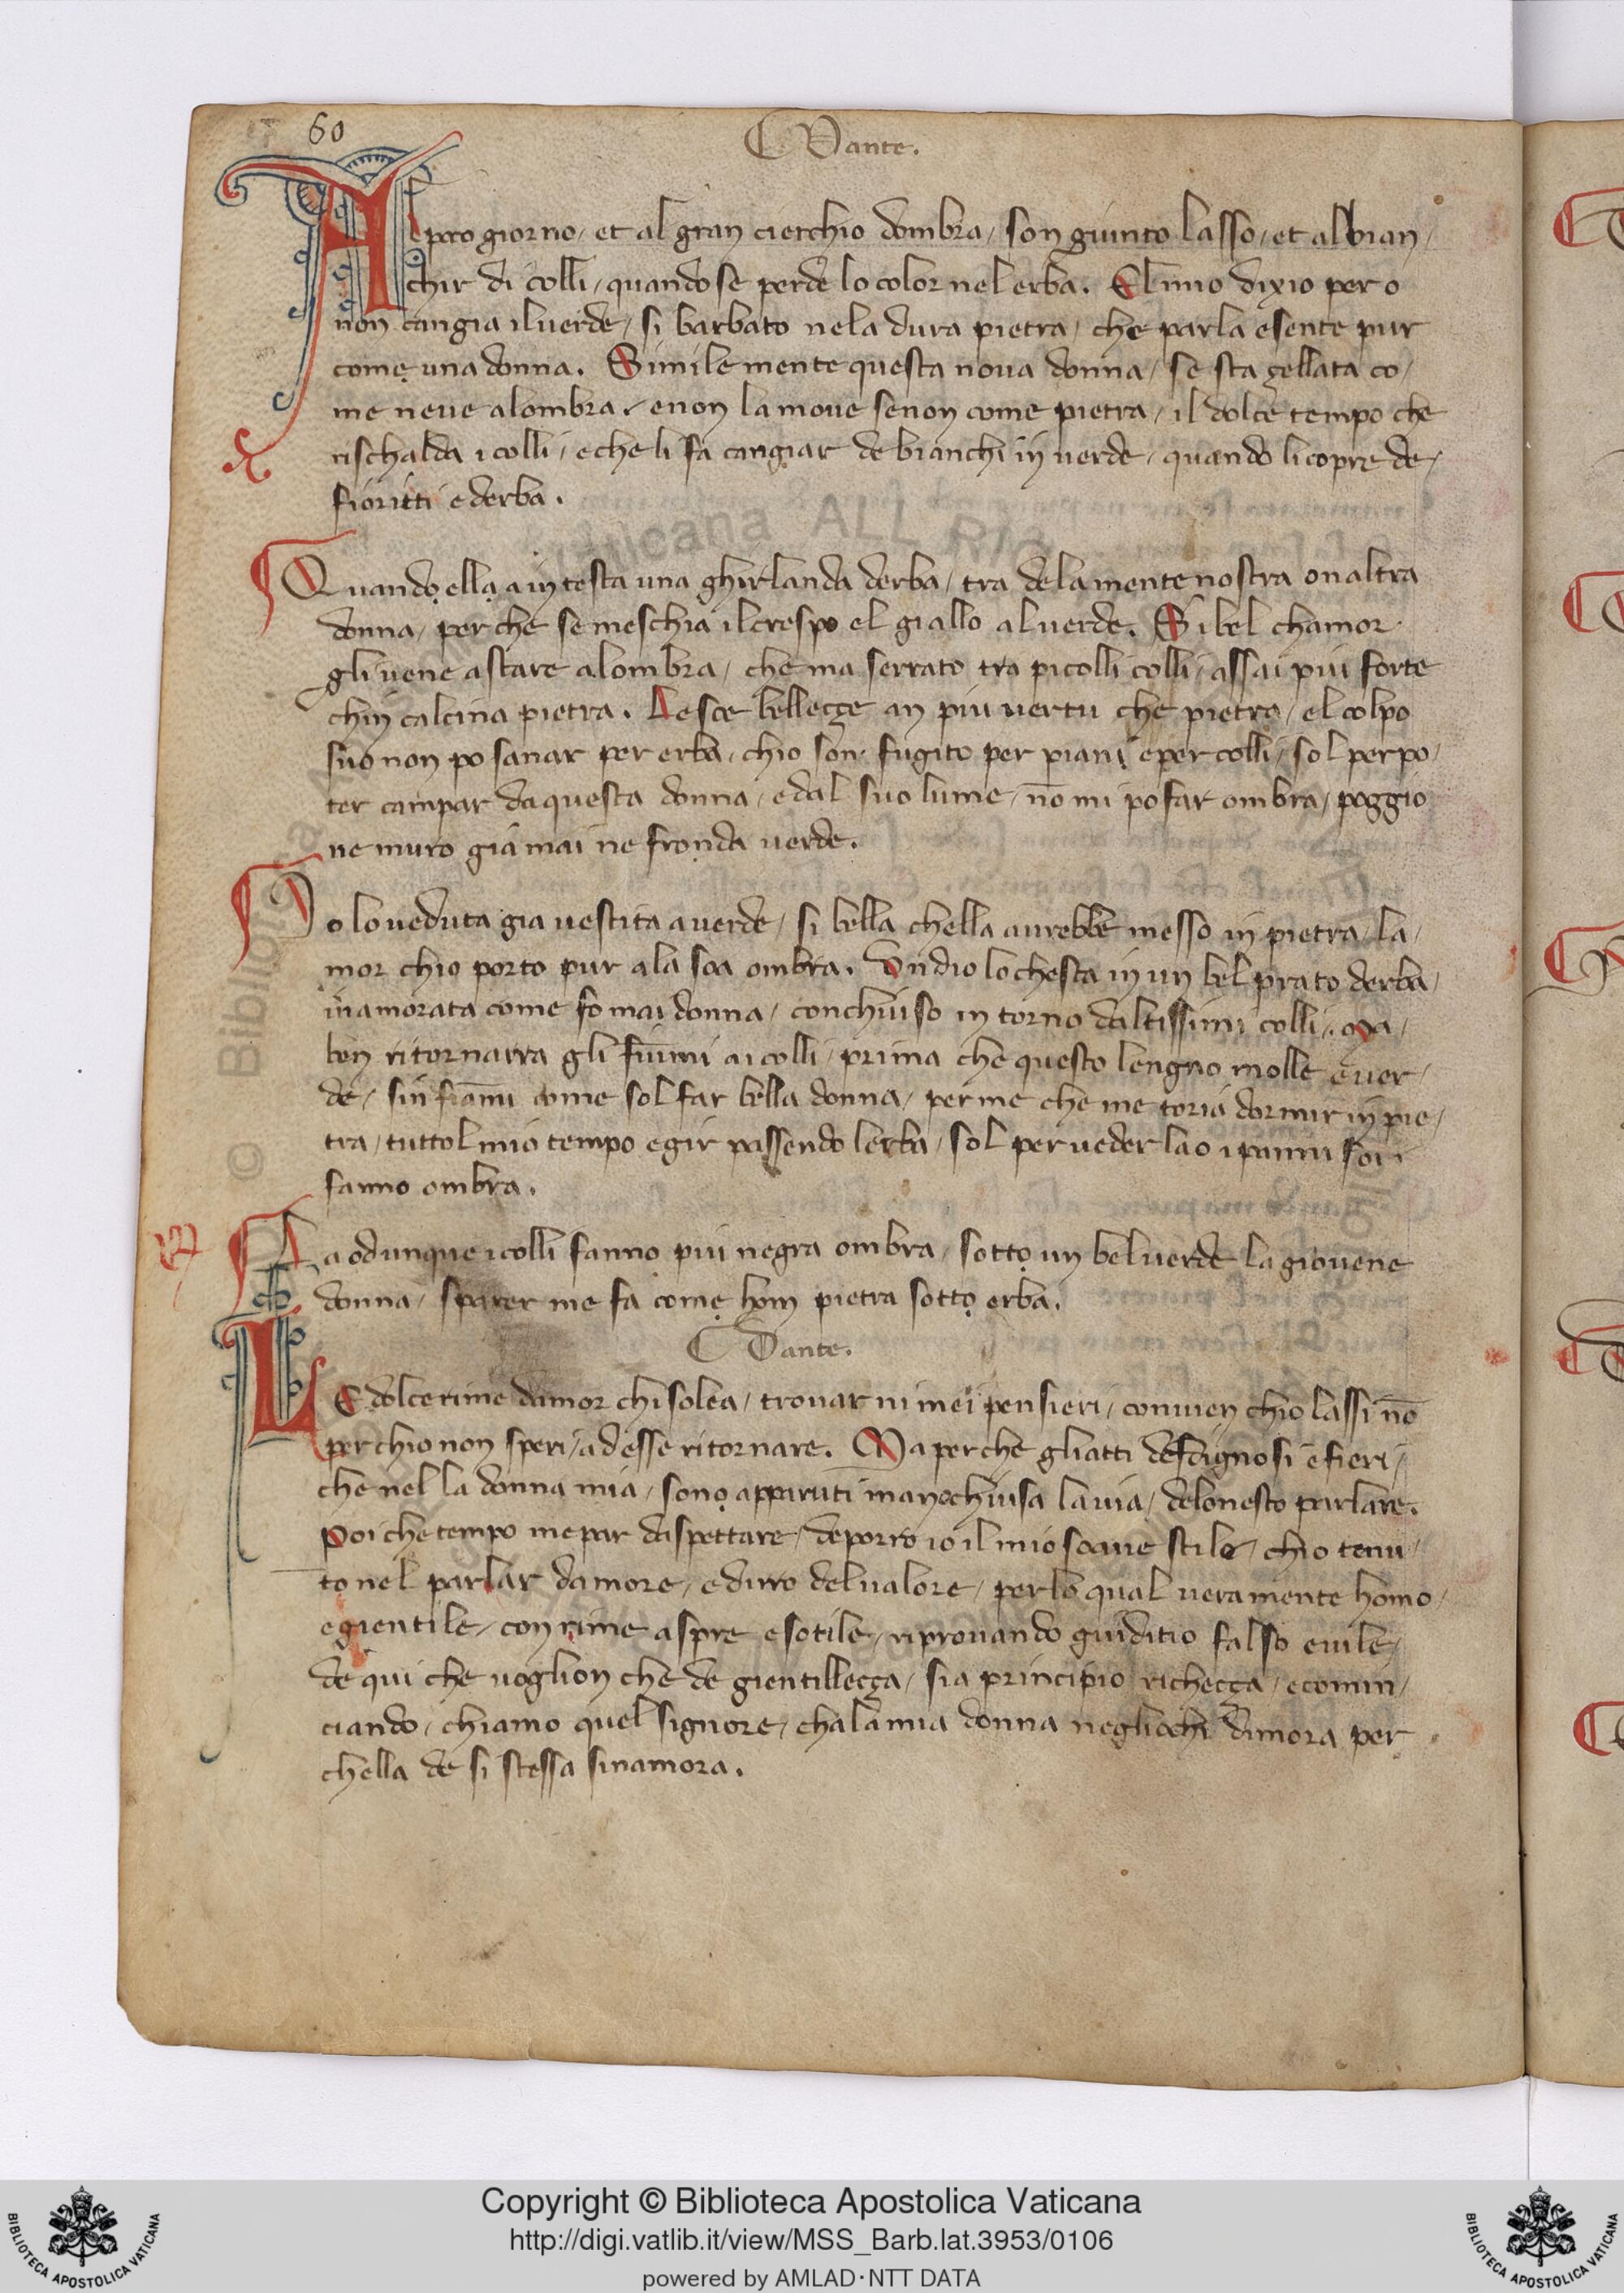 60
Dante.
Al poco giorno / et al gran cierchio dombra / son giunto lasso / et al bian /
chir di colli / quando se perde lo color nel erba. El mio dixio pero
non cangia il verde / si barbato nela dura pietra / che parla e sente pur
come una donna. Simile mente questa nova donna / se sta gellata co /
me neve alombra / e non la move se non come pietra / il dolce tempo che
rischalda i colli / e che li fa cangiar de bianchi in verde / quando li copre de /
fioritti e derba.
Quando ella a in testa una ghirlanda derba / tra dela mente nostra on altra
donna / per che se meschia il crespo el giallo al verde. Si bel chamor
gli vene a stare alombra / che ma serrato tra picolli colli / assai piu forte
chin calcina pietra. Le soe bellecçe an piu vertu che pietra / el colpo
suo non po sanar per erba / chio son fugito per piani e per colli / sol per po /
ter campar da questa donna / e dal suo lume / nō mi po far ombra / poggio
ne muro gia mai ne fronda verde.
Io lo veduta gia vestita a verde / si bella chella avrebbe messo in pietra / la /
mor chio porto pur ala soa ombra. Undio lo chesta in un bel prato derba /
inamorata come fo mai donna / e conchiuso in torno daltissimi colli. Ma /
ben ritornarra gli fiumi ai colli / prima che questo lengno molle e ver /
de / sinfiāmi come sol far bella donna / per me che me toria dormir in pie /
tra / tuttol mio tempo e gir passendo lerba / sol per veder la o i panni soi
fanno ombra.
La odunque i colli fanno piu negra ombra / sotto un bel verde la giovene
donna / sparer me fa come hom pietra sotto erba.
Dante.
LE dolce rime damor chi solea / trovar ni mei pensieri / convien chio lassi nō
per chio non speri / ad esse ritornare. Ma per che gli atti desdignosi e fieri /
che nel la donna mia / sono apparuti man chiusa la via / delonesto parlare.
Poi che tempo me par daspettare / deporro io il mio soave stile / chio tenu /
to nel parlar damore / e diro del valore / per lo qual vera mente homo /
e gientile / con rime aspre e sotile / riprovando giuditio falso e vile /
de qui che voglion che de gientillecça / sia principio richecça / e comin /
ciando / chiamo quel signore / chala mia donna negliochi dimora per
chella de si stessa sinamora.
Copyright © Biblioteca Apostolica Vaticana
http://digi.vatlib.it/view/MSS_Barb.lat.3953/0106
powered by AMLAD·NTT DATA
BIBLIOTECA APOSTOLICA VATICANA
BIBLIOTECA APOSTOLICA VATICANA